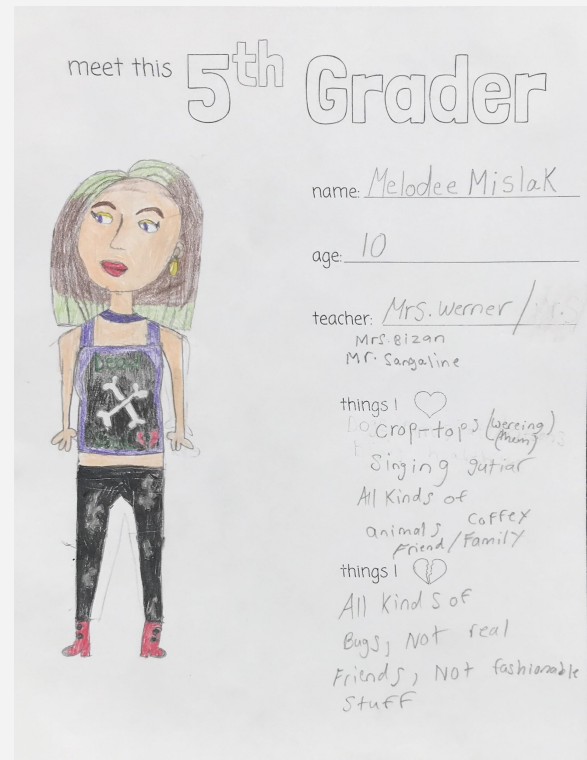 meet this 5th Grader
name: Melodee Mislak
age: 10
teacher: Mrs. Werner /
Mrs. Bizan
Mr. Sargaline
things I
crop-tops (wereing)
(them)
Singing gutiar
All Kinds of
animals Coffey
Friend/Family
things I
All Kinds of
Bugs, Not real
Friends, Not fashionable
Stuff